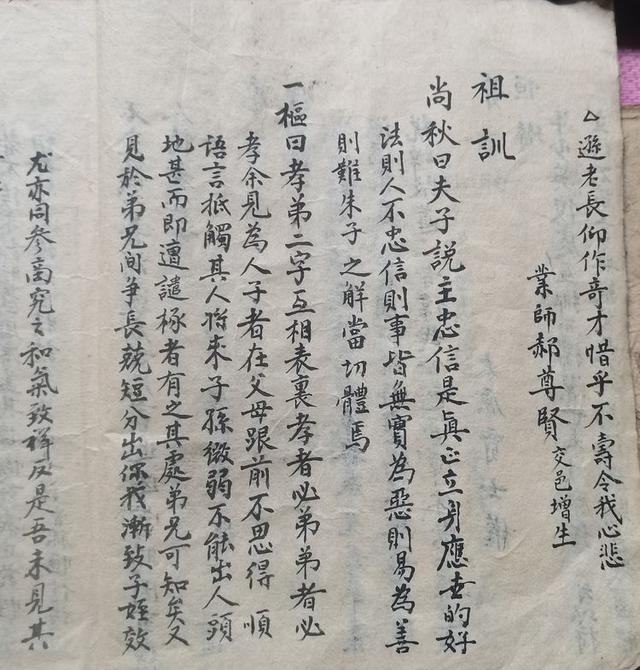 △遜老長仰作奇才惜乎不壽令我心悲
業師郝尊賢交邑增生
祖訓
尚秋曰夫子說主忠信是真正立身應世的好
法則人不忠信則事皆無實為惡則易為善
則難朱子之解當切體焉
一樞曰孝弟二字互相表裏孝者必弟弟者必
孝余見為人子者在父母跟前不思得順
語言抵觸其人將來子孫微弱不能出人頭
地甚而即遭譴椓者有之其處弟兄可知矣又
見於弟兄间爭長競短分出你我漸致子姪效
尤亦同參商究之和氣致祥反是吾未見其